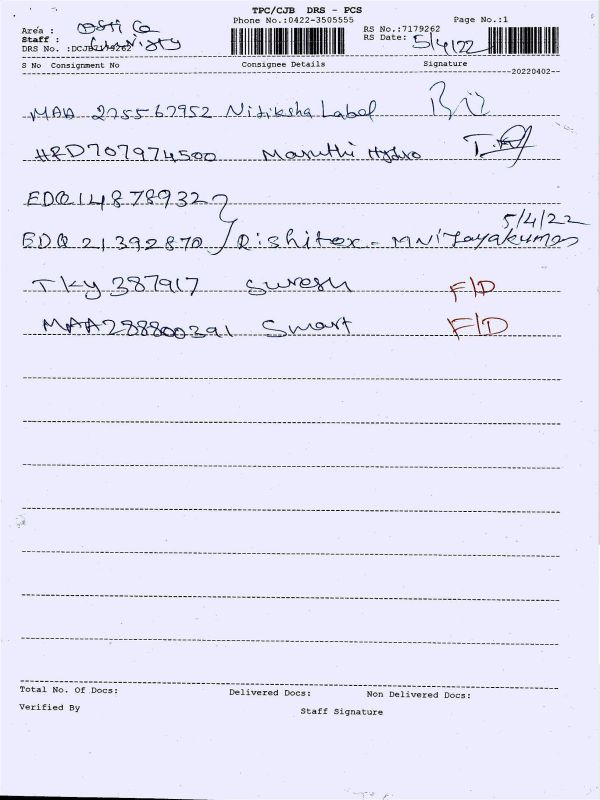 TPC/CJB DRS - PCS
Phone No.:0422-3505555 Page No.:1
Area :
Staff :
RS No.:7179262
DRS No. :DCJB7179262 RS Date: 5/4/22
S No Consignment No Consignee Details Signature
20220402
MAA 275567952 Nitiksha Label
HRD707974500 Maruthi Hydro
EDQ148789327
EDQ 21392870 Rishitex - MNIJayakumar 5/4/22
TKY 387917 Suresh F/D
MAA288800391 Smart F/D
Total No. Of Docs: Delivered Docs: Non Delivered Docs:
Verified By Staff Signature